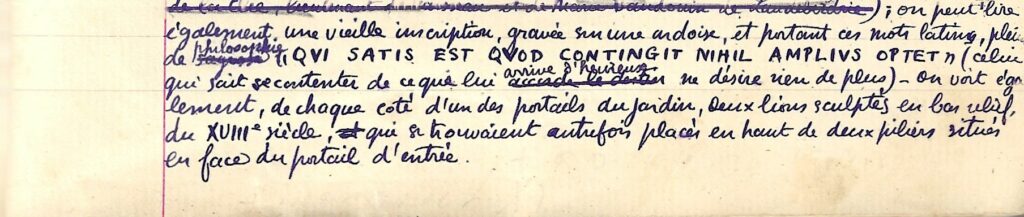 et de Marie Baudouin de ); on peut lire
également, une vieille inscription, gravée sur une ardoise, et portant ces mots latins, plei
philosophie
de sagesse "QVI SATIS EST QVOD CONTINGIT NIHIL AMPLIVS OPTET" (celui
arrive d'heureux
qui sait se contenter de ce que lui accorde le destin ne désire rien de plus) - On voit éga
lement, de chaque coté d'un des portails du jardin, deux lions sculptés en bas relief,
du XVIIIe siècle, et qui se trouvaient autrefois placés en haut de deux piliers situés
en face du portail d'entrée.